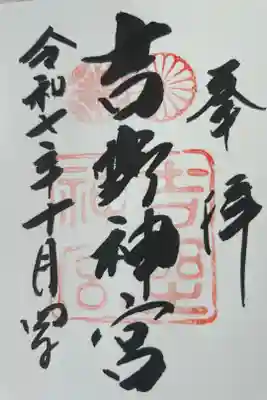 奉拝
吉野神宮
令和七年十月四日
吉野
神宮